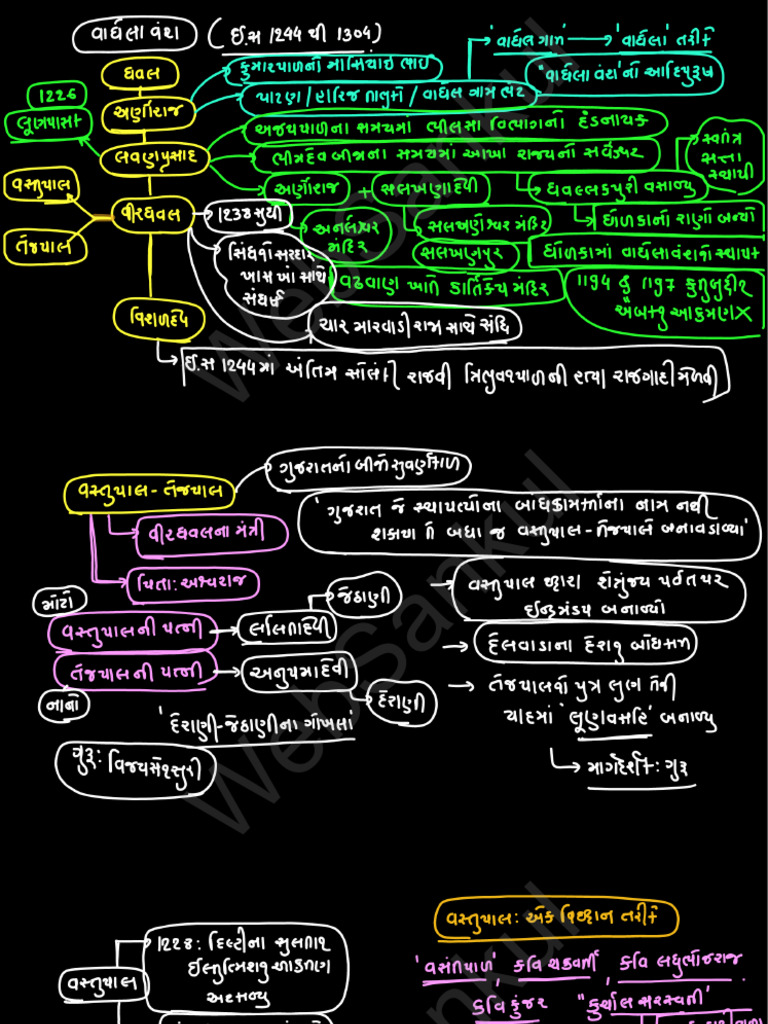 વાઘેલા વંશ (ઈ.સ 1244 થી 1304)
'વાઘેલ ગામ' → 'વાઘેલા' તરીકે
ધવલ
કુમારપાળનો માસિયાઇ ભાઇ
"વાઘેલા વંશ'નો આદિપુરૂષ
1226
લૂણપાસા
અર્ણોરાજ
પાટણ / હારિજ તાલુકો / વાઘેલ ગામ ભેટ
અજયપાળના સમયમાં ભીલસા વિભાગનો દંડનાયક
લવણપ્રસાદ
ભીમદેવ બીજાના સમયમાં આખા રાજ્યનો સર્વેશ્વર
સ્વતંત્ર સત્તા સ્થાપી
વસ્તુપાલ
અર્ણોરાજ + સલખણાદેવી
ધવલ્લકપુરી વસાવ્યુ
વીરધવલ
1238 સુધી
અનલેશ્વર મંદિર
સલખણેશ્વર મંદિર
ધોળકાનો રાણો બન્યો
તેજપાલ
સિંધના સરદાર ખાસ ખાં સાથે સંઘર્ષ
સલખણપુર
ધોળકામાં વાઘેલાવંશની સ્થાપના
વઢવાણ ખાતે કાર્તિકેય મંદિર
1194 & 1197 કુતુબુદ્દીન ઐબકનુ આક્રમણ X
વિશળદેવ
ચાર મારવાડી રાજા સાથે સંધિ
ઈ.સ 1244માં અંતિમ સોલંકી રાજવી ત્રિભુવનપાળની હત્યા રાજગાદી મેળવી
ગુજરાતનો બીજો સુવર્ણકાળ
વસ્તુપાલ - તેજપાલ
'ગુજરાત જે સ્થાપત્યોના બાંધકામકર્તાના નામ નથી
શકાયા તે બધા જ વસ્તુપાલ - તેજપાલે બનાવડાવ્યા'
વીરધવલના મંત્રી
પિતા: અશ્વરાજ
જેઠાણી
વસ્તુપાલ દ્વારા શેત્રુંજય પર્વત પર
ઇન્દ્રમંડપ બનાવ્યો
મોટો
વસ્તુપાલની પત્ની → લલિતાદેવી
દેલવાડાના દેરાનુ બાંધકામ
તેજપાલની પત્ની → અનુપમાદેવી
નાનો
દેરાણી
તેજપાલના પુત્ર લુણ તેની
યાદમાં 'લૂણવસહિ' બનાવ્યુ
'દેરાણી-જેઠાણીના ગોખલા'
ગુરૂ: વિજયસેનસુરી
માર્ગદર્શક: ગુરૂ
વસ્તુપાલ: એક વિદ્વાન તરીકે
1228: દિલ્હીના સુલતાન
ઈલ્તુત્મિશનુ આક્રમણ
અટકાવ્યુ
વસ્તુપાલ
'વસંતપાળ' કવિ ચક્રવર્તી કવિ લઘુભોજરાજ
કવિ કુંજર "કુર્ચાલ સરસ્વતી'
WebSankul
WebSankul
WebSankul